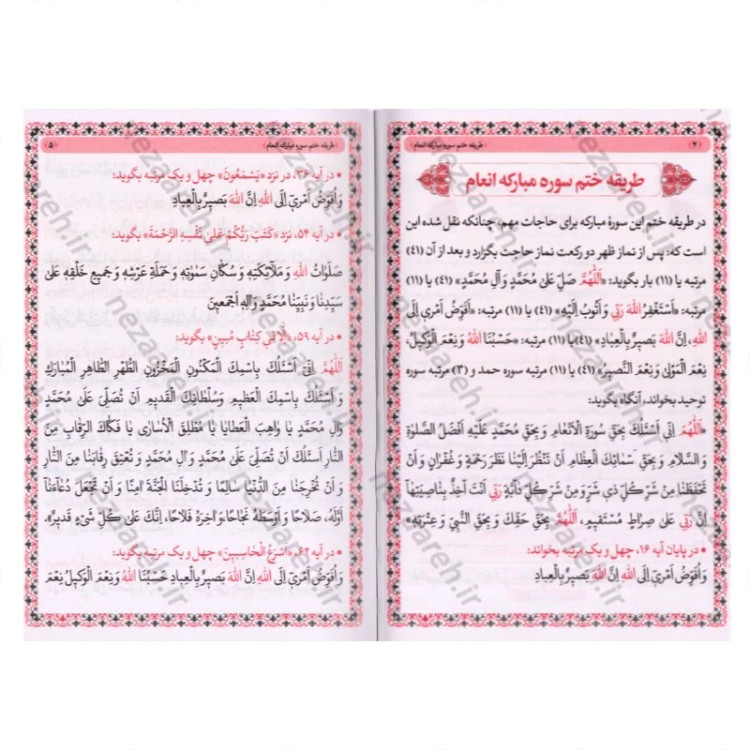 ﴿۴﴾ طریقه ختم سوره مبارکه انعام
طریقه ختم سوره مبارکه انعام
در طریقه ختم این سورهٔ مبارکه برای حاجات مهم، چنانکه نقل شده این
است که: پس از نماز ظهر دو رکعت نماز حاجت بگزارد و بعد از آن (۴۱)
مرتبه یا (۱۱) بار بگوید: «اَللّٰهُمَّ صَلِّ عَلیٰ مُحَمَّدٍ وَآلِ مُحَمَّدٍ» (۴۱) یا (۱۱)
مرتبه: «اَسْتَغْفِرُ اللهَ رَبّی وَ اَتُوبُ اِلَیْهِ» (۴۱) یا (۱۱) مرتبه: «اُفَوِّضُ اَمْری اِلَی
اللهِ، اِنَّ اللهَ بَصیرٌ بِالْعِبادِ» (۴۱) یا (۱۱) مرتبه: «حَسْبُنَا اللهُ وَ نِعْمَ الْوَکیلُ،
نِعْمَ الْمَوْلیٰ وَ نِعْمَ النَّصیرُ» (۴۱) یا (۱۱) مرتبه سوره حمد و (۳) مرتبه سوره
توحید بخواند، آنگاه بگوید:
«اَللّٰهُمَّ اِنّی اَسْئَلُکَ بِحَقِّ سُورَةِ الْاَنْعٰامِ وَ بِحَقِّ مُحَمَّدٍ عَلَیْهِ اَفْضَلُ الصَّلٰوةِ
وَ السَّلامِ وَ بِحَقِّ سَمٰائِکَ الْعِظٰامِ اَنْ تَنْظُرَ اِلَیْنٰا نَظَرَ رَحْمَةٍ وَ غُفْرٰانٍ وَ اَنْ
تَحْفَظَنٰا مِنْ شَرِّ کُلِّ ذی شَرٍّ وَ مِنْ شَرِّ کُلِّ دٰابَّةٍ رَبّی اَنْتَ آخِذٌ بِنٰاصِیَتِهٰا
اِنَّ رَبّی عَلیٰ صِرٰاطٍ مُسْتَقیمٍ، اَللّٰهُمَّ بِحَقِّ حَقِّکَ وَ بِحَقِّ النَّبِیِّ وَ عِتْرَتِهِ»
• در پایان آیه ۱۶، چهل و یک مرتبه بخواند:
وَ اُفَوِّضُ اَمْری اِلَی اللهِ اِنَّ اللهَ بَصیرٌ بِالْعِبادِ
طریقه ختم سوره مبارکه انعام ﴿۵﴾
• در آیه ۳۶، در نزد «یَسْمَعُونَ» چهل و یک مرتبه بگوید:
وَ اُفَوِّضُ اَمْری اِلَی اللهِ اِنَّ اللهَ بَصیرٌ بِالْعِبادِ
• در آیه ۵۴، نزد «کَتَبَ رَبُّکُمْ عَلیٰ نَفْسِهِ الرَّحْمَةَ» بگوید:
صَلَوٰاتُ اللهِ وَ مَلٰآئِکَتِهِ وَ سُکّٰانِ سَمٰوٰتِهِ وَ حَمَلَةِ عَرْشِهِ وَ جَمیعِ خَلْقِهِ عَلیٰ
سَیِّدِنٰا وَ نَبِیِّنٰا مُحَمَّدٍ وَ آلِهِ اَجْمَعینَ
• در آیه ۵۹، «اِلّٰا فی کِتٰابٍ مُبینٍ» بگوید:
اَللّٰهُمَّ اِنّی اَسْئَلُکَ بِاسْمِکَ الْمَکْنُونِ الْمَخْزُونِ الطُّهْرِ الطّٰاهِرِ الْمُبٰارَکِ
وَ اَسْئَلُکَ بِاسْمِکَ الْعَظیمِ وَ سُلْطٰانِکَ الْقَدیمِ اَنْ تُصَلِّیَ عَلیٰ مُحَمَّدٍ
وَ آلِ مُحَمَّدٍ یٰا وٰاهِبَ الْعَطٰایٰا یٰا مُطْلِقَ الْاُسٰاریٰ یٰا فَکّٰاکَ الرِّقٰابِ مِنَ
النّٰارِ اَسْئَلُکَ اَنْ تُصَلِّیَ عَلیٰ مُحَمَّدٍ وَ آلِ مُحَمَّدٍ وَ تُعْتِقَ رِقٰابَنٰا مِنَ النّٰارِ
وَ اَنْ تُخْرِجَنٰا مِنَ الدُّنْیٰا سٰالِمًا وَ تُدْخِلَنَا الْجَنَّةَ آمِنًا وَ اَنْ تَجْعَلَ دُعٰاءَنٰا
اَوَّلَهُ، صَلٰاحًا وَ اَوْسَطَهُ نَجٰاحًا، وَ آخِرَهُ فَلٰاحًا، اِنَّکَ عَلیٰ کُلِّ شَیْءٍ قَدیرٌ».
• در آیه ۶۲، «اَسْرَعُ الْحٰاسِبینَ» چهل و یک مرتبه بگوید:
وَ اُفَوِّضُ اَمْری اِلَی اللهِ اِنَّ اللهَ بَصیرٌ بِالْعِبادِ حَسْبُنَا اللهُ وَ نِعْمَ الْوَکیلُ نِعْمَ
nezaareh.ir